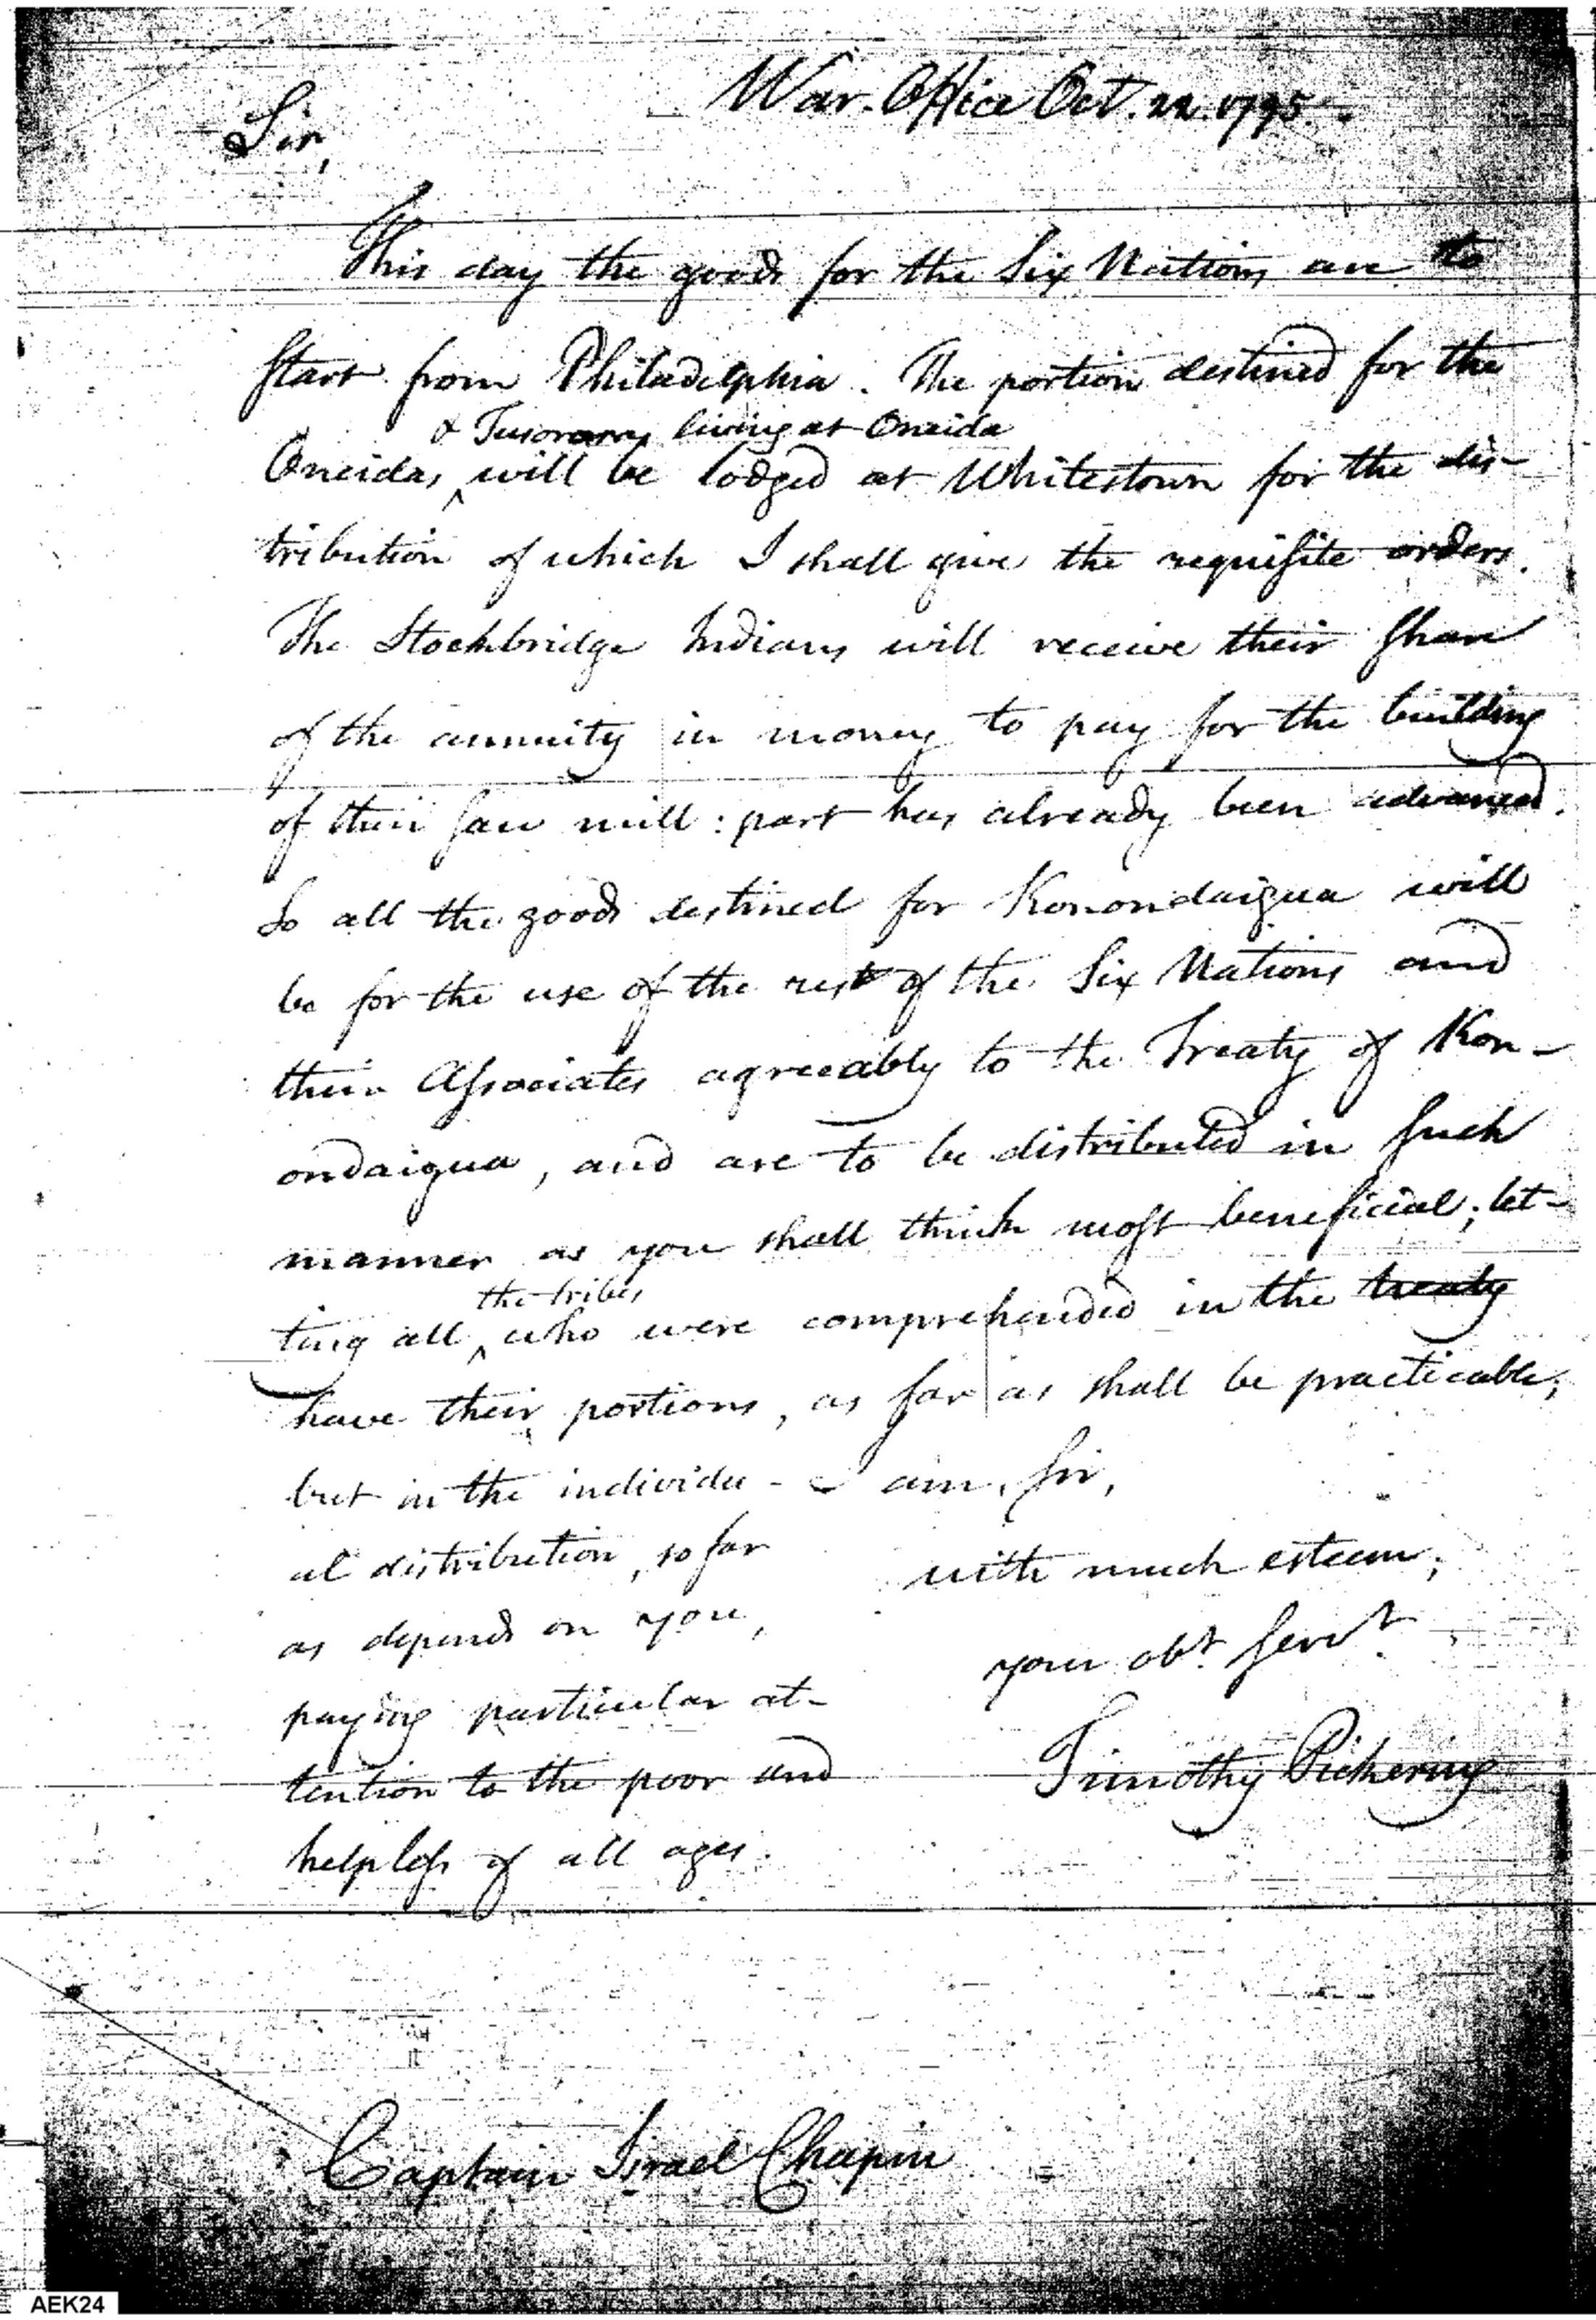 War-Office Oct. 22. 1795.
Sir,
This day the goods for the Six Nations are to
start from Philadelphia. The portion destined for the
& Tuscororas living at Oneida
Oneidas ^ will be lodged at Whitestown for the dis-
tribution of which I shall give the requisite orders.
The Stockbridge Indians will receive their share
of the annuity in money to pay for the building
of their saw mill: part has already been advanced.
So all the goods destined for Konondaigua will
be for the use of the rest of the Six Nations and
their Associates agreeably to the Treaty of Kon-
ondaigua, and are to be distributed in such
manner as you shall think most beneficial; let-
the tribes
ting all ^ who were comprehended in the treaty
have their portions, as far as shall be practicable;
but in the individu-
al distribution, so far
as depends on you,
paying particular at-
tention to the poor and
helpless of all ages.
I am, sir,
with much esteem,
your obt. servt.
Timothy Pickering
Captain Israel Chapin
AEK24